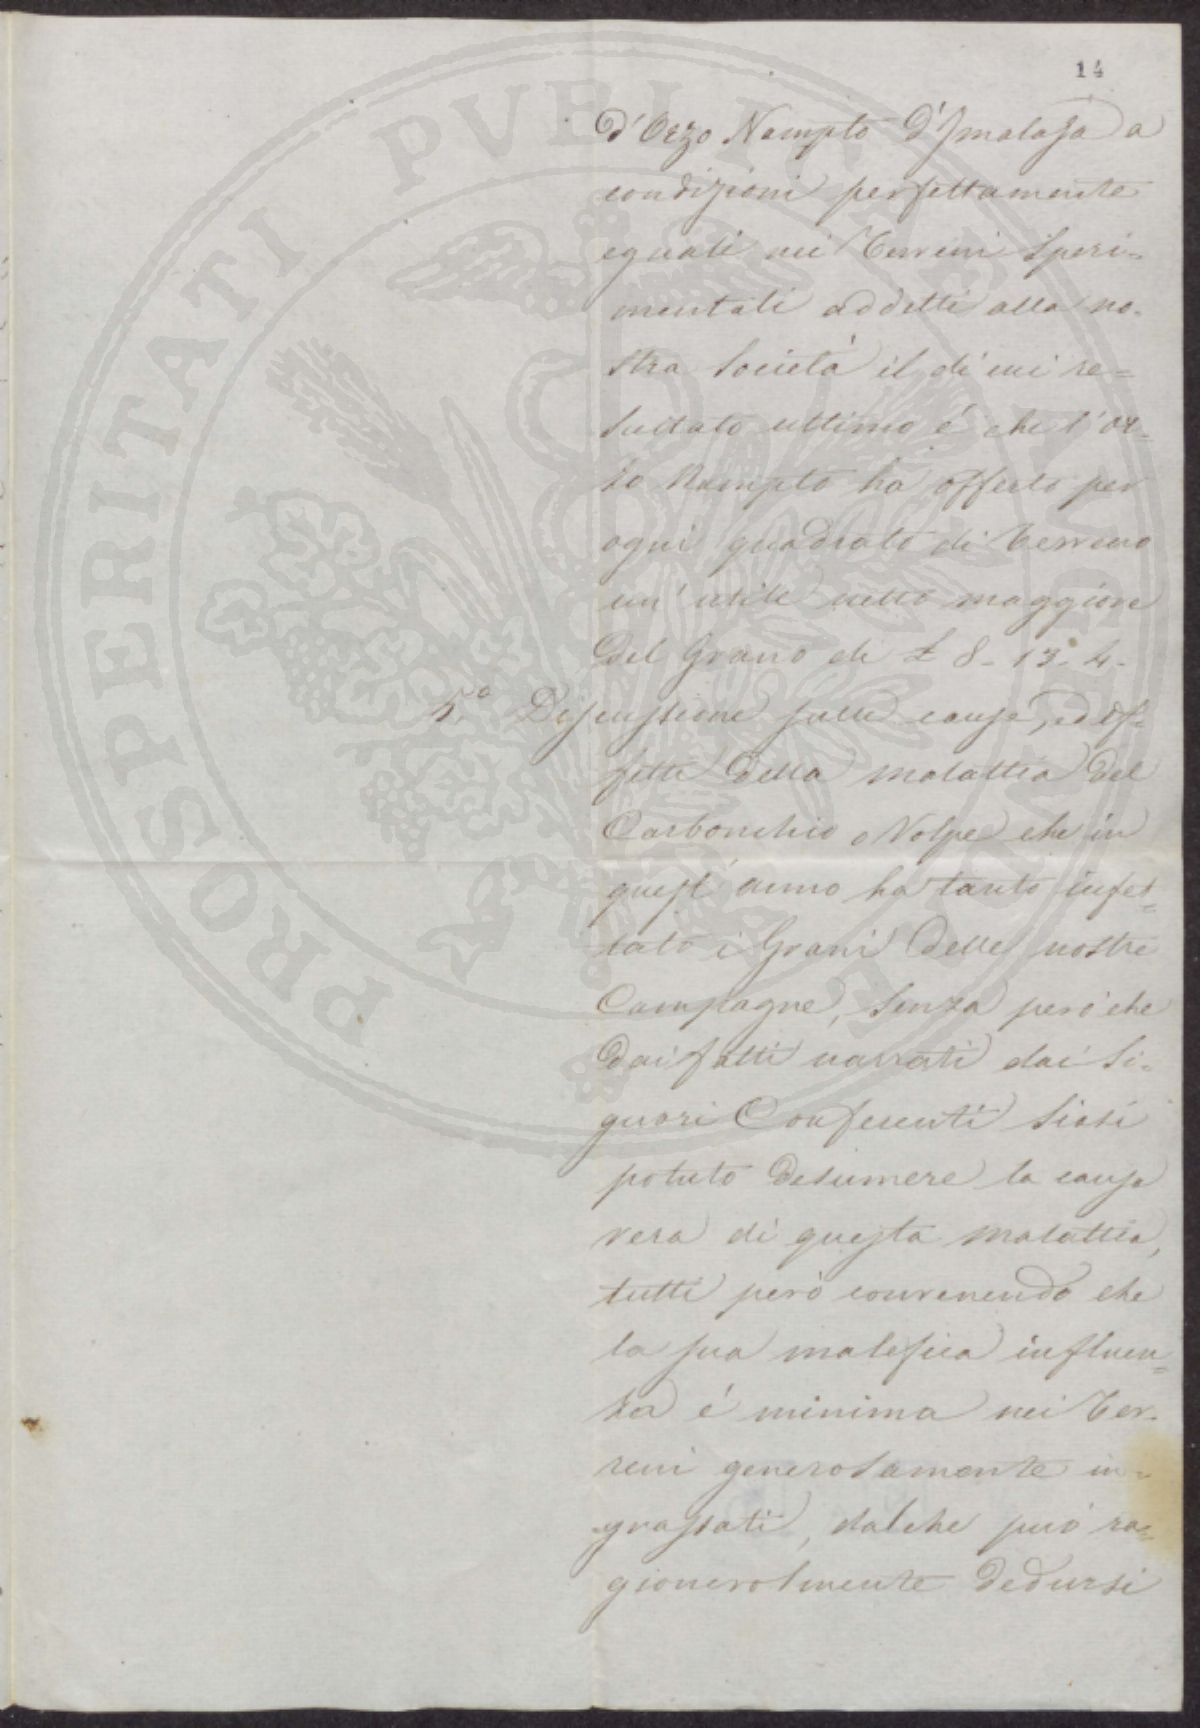 14
d'Orzo Nampto d'Jmalaja a
condizioni perfettamente
eguali nei Terreni Speri-
mentali addetti alla no-
stra Società il di cui re-
sultato ultimo é che l'or-
zo Nampto ha offerto per
ogni quadrato di Terreno
un' utile netto maggiore
del Grano di £ 8-13-4-
5.° Discussione sulle cause, ed ef-
fetti della malattia del
Carbonchio o Volpe che in
quest' anno ha tanto infet-
tato i Grani delle nostre
Campagne, senza però che
dai fatti narrati dai Si-
gnori Conferenti siasi
potuto desumere la causa
vera di questa malattia,
tutti però convenendo che
la sua malefica influen-
za é minima nei Ter-
reni generosamente in-
grassati, dal che può ra-
gionevolmente dedursi
PROSPERITATI PVBLICAE AVGENDAE